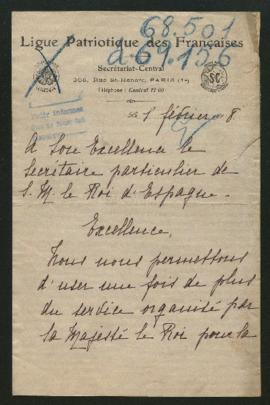 68.501
d 69.156
Ligue Patriotique des Françaises
Secrétariat-Central
368, Rue St-Honoré, PARIS (1er)
Téléphone : Central
1 février 8
A Son Excellence le
Secrétaire particulier de
S. M. le Roi d'Espagne.
Excellence,
Nous nous permettons
d'user une fois de plus
du service organisé par
sa Majesté le Roi pour la